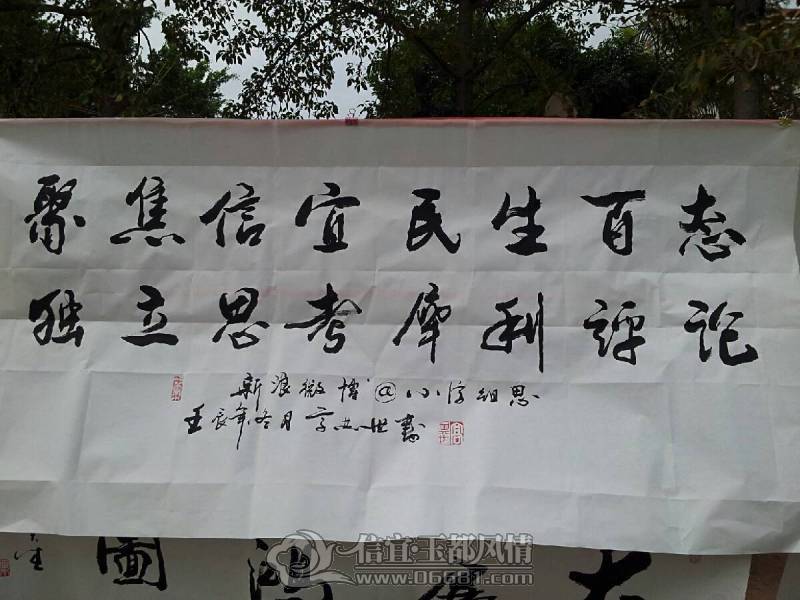 聚焦信宜民生百态
独立思考犀利评论
新浪微博@小浮细思
壬辰年冬月
信宜·玉都风情
www.06681.com
圖